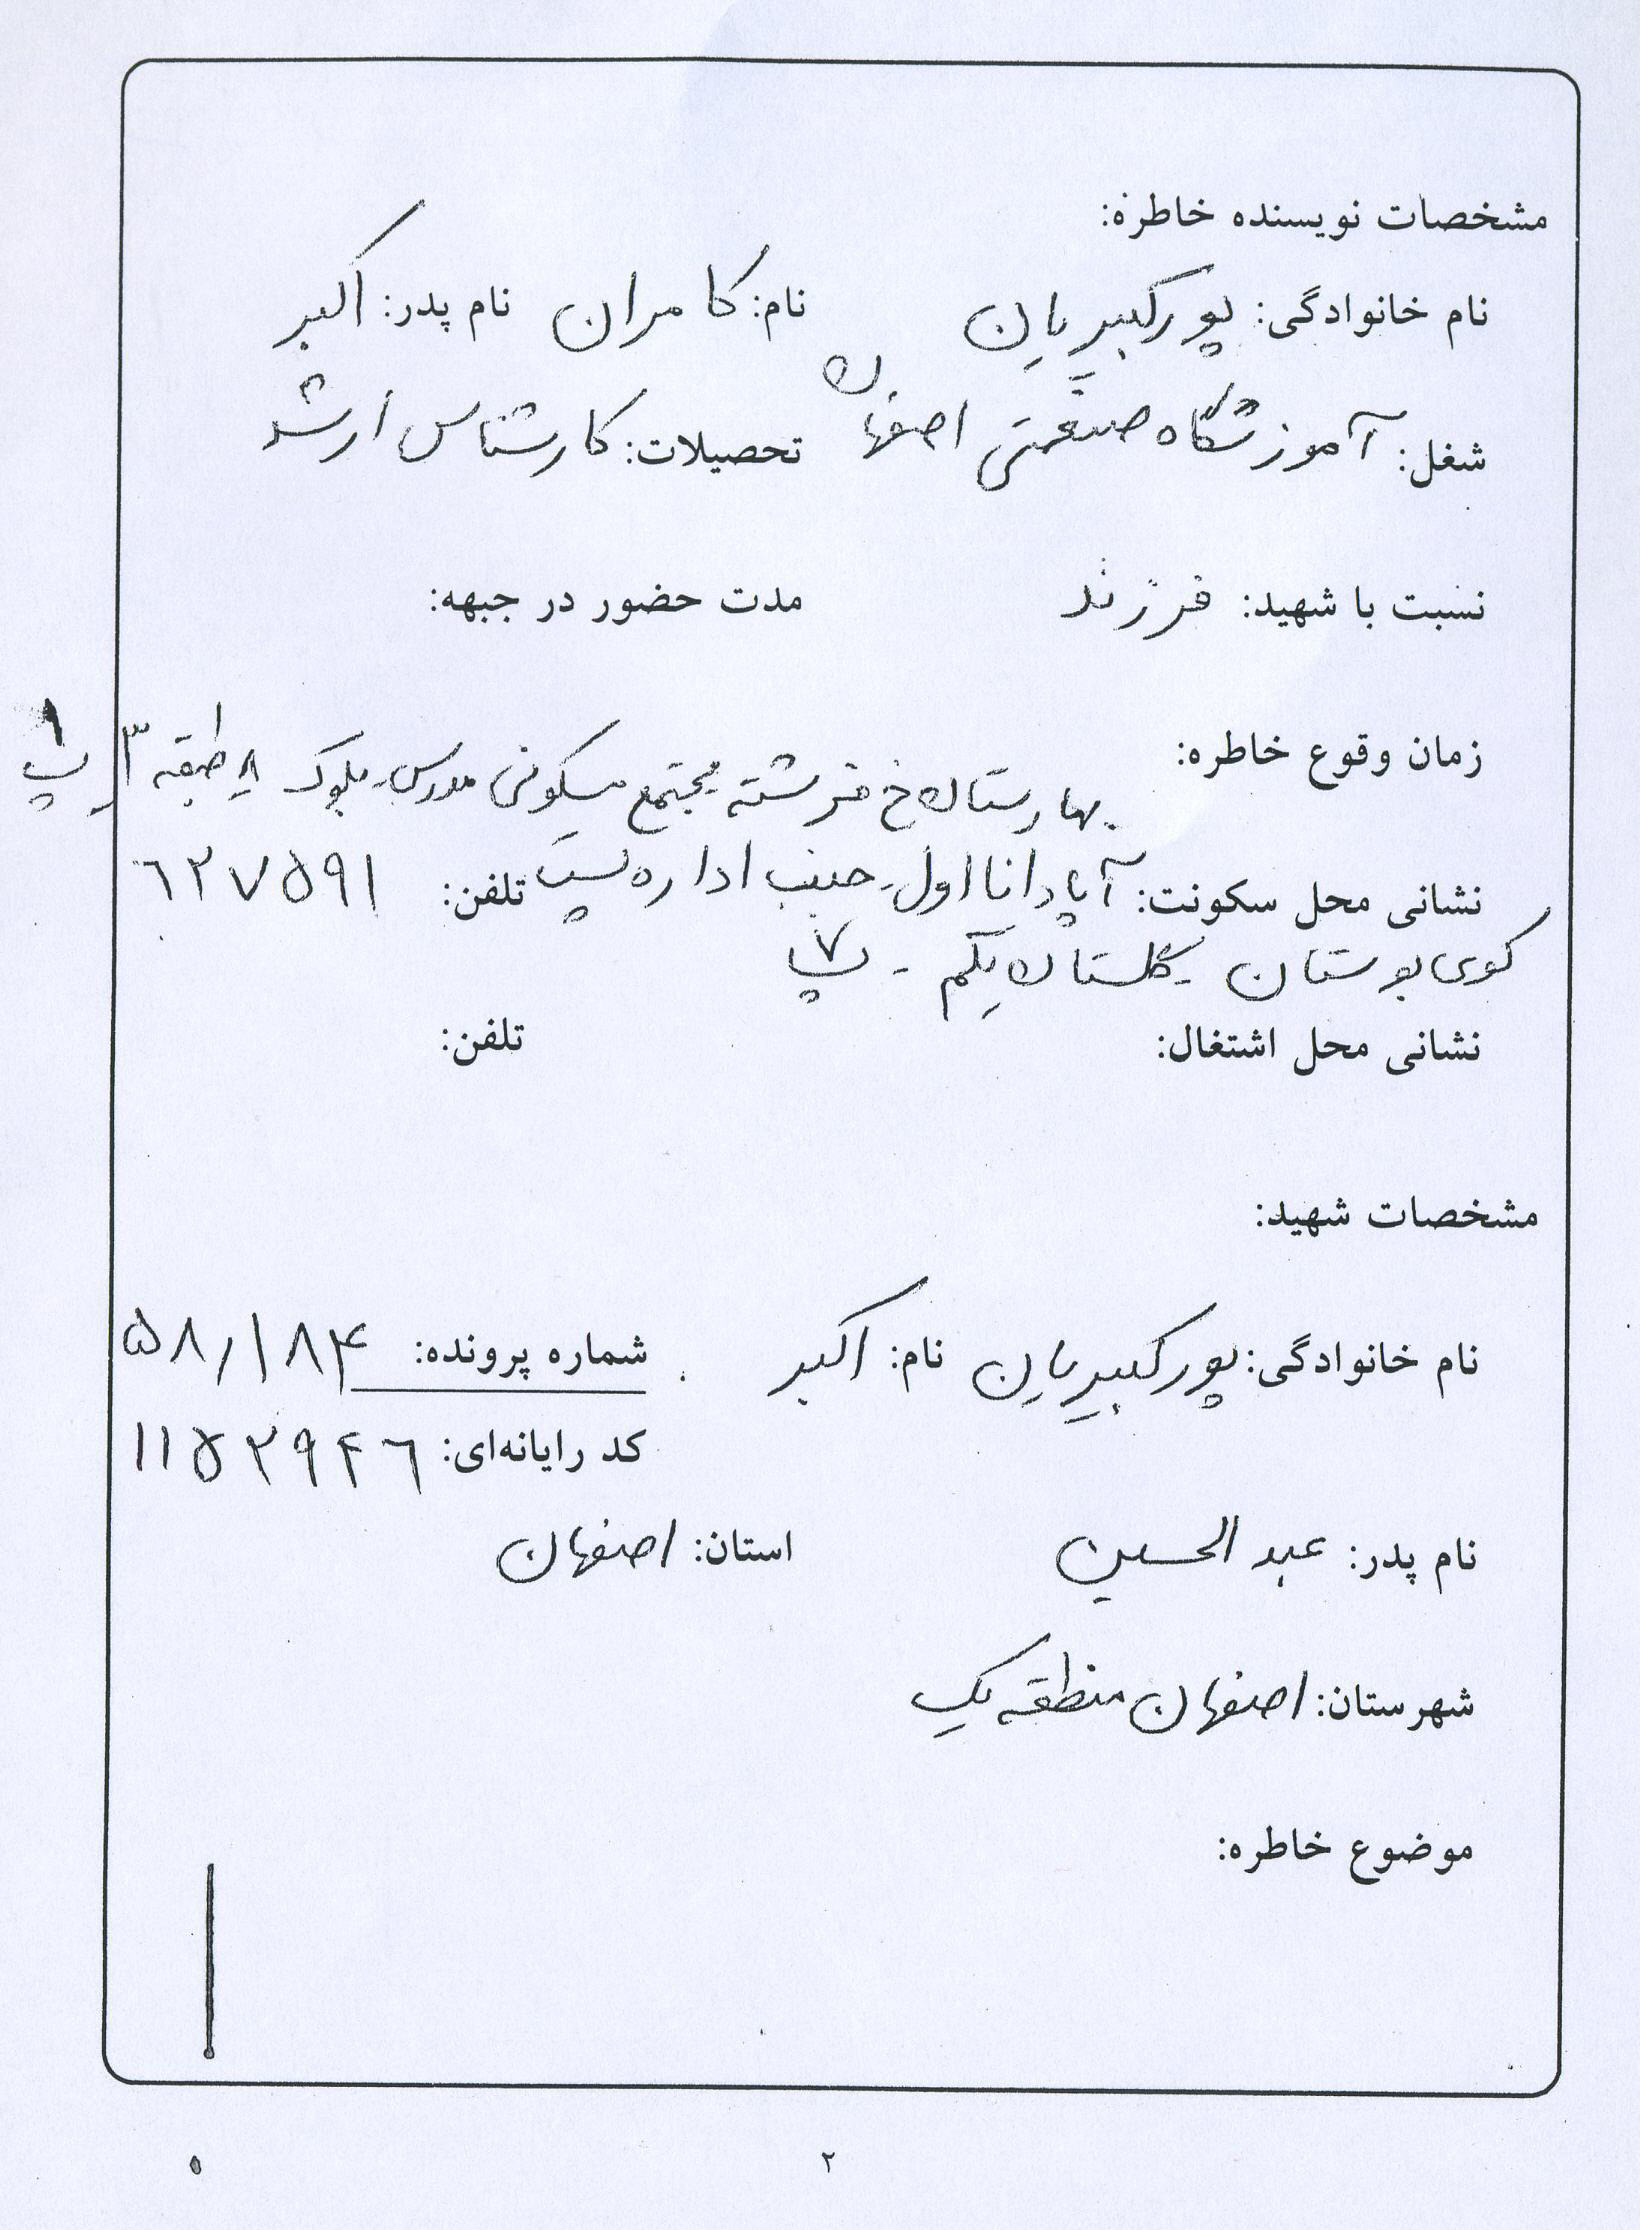 مشخصات نویسنده خاطره:
نام خانوادگی: پورکبیریان نام: کامران نام پدر: اکبر
شغل: آموزشگاه صنعتی اصفهان تحصیلات: کارشناس ارشد
نسبت با شهید: فرزند مدت حضور در جبهه:
زمان وقوع خاطره:
بهارستان خ فرشته مجتمع مسکونی مدرس بلوک ۸ طبقه ۳ پ ۱
نشانی محل سکونت: آپادانا اول - جنب اداره پست تلفن: ۶۲۷۵۹۱
کوی بوستان - گلستان یکم - پ ۷
نشانی محل اشتغال: تلفن:
مشخصات شهید:
نام خانوادگی: پورکبیریان نام: اکبر شماره پرونده: ۵۸/۱۸۴
کد رایانه‌ای: ۱۱۵۲۹۴۶
نام پدر: عبدالحسین استان: اصفهان
شهرستان: اصفهان منطقه یک
موضوع خاطره:
۲